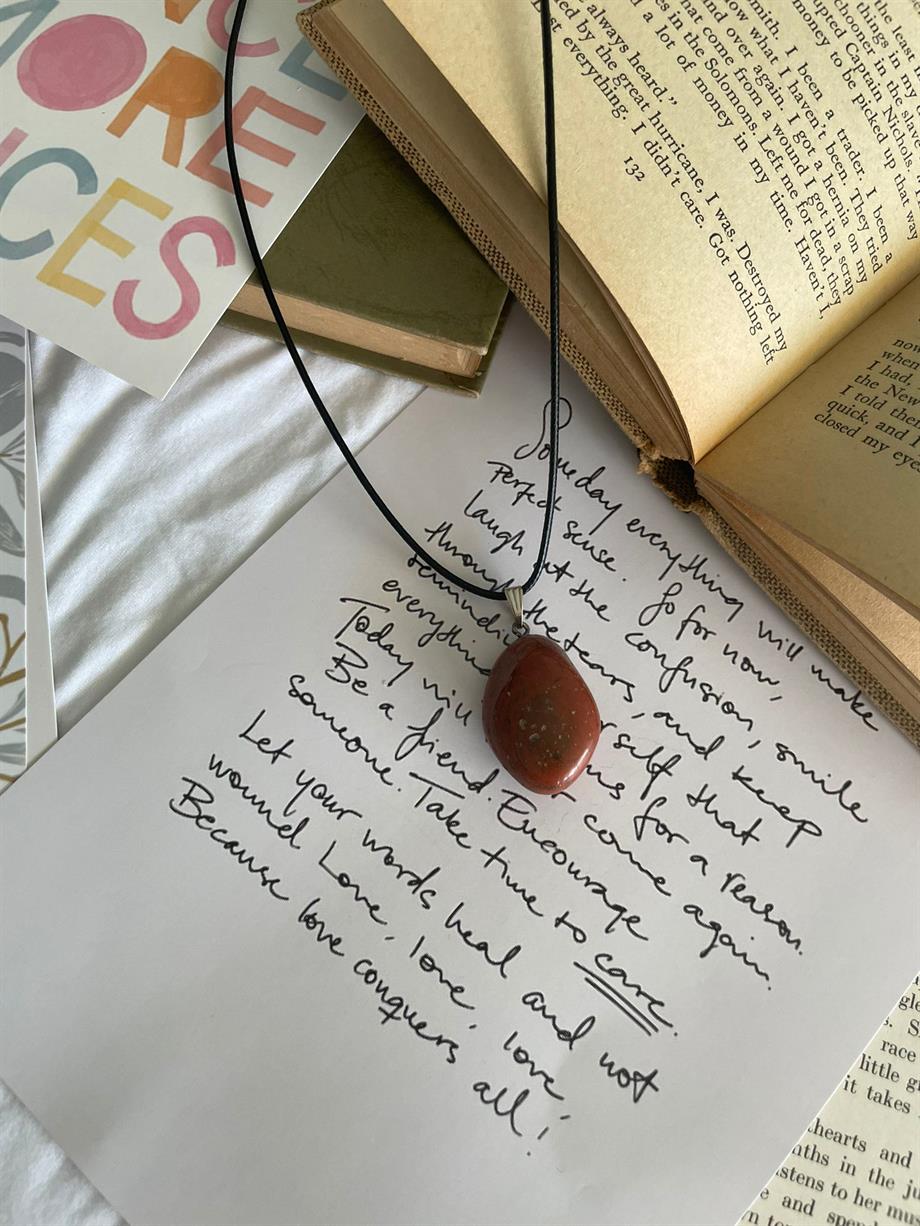 MORE
CES
the least
things in my
chooner in the slave
upted Captain Nichols,
money to be picked up that way
Smith. I been a trader. I been a
now what I haven't been. They tried
and over again. I got a hernia on my
hat come from a wound I got in a scrap
es in the Solomons. Left me for dead, they
a lot of money in my time. Haven't I,
always heard."
ed by the great hurricane, I was. Destroyed my
t everything. I didn't care. Got nothing left
132
now
when
I had,
the New
I told them
quick, and I
closed my eyes
Someday everything will make
perfect sense. So for now,
laugh at the confusion, smile
through the tears, and keep
remindi rself that
everythin ns for a reason.
Today will come again.
Be a friend. Encourage
someone. Take time to care.
Let your words heal and not
wound. Love, love, love!
Because love conquers all!
race
little g
it takes
hearts and
nths in the ju
stens to her mus
e and spen